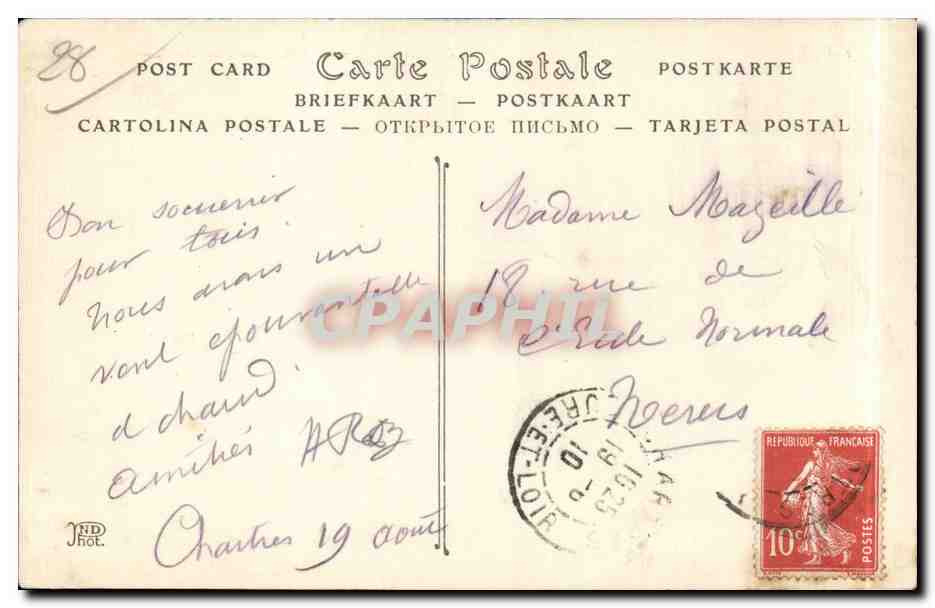 28
POST CARD Carte Postale POSTKARTE
BRIEFKAART — POSTKAART
CARTOLINA POSTALE — ОТКРЫТОЕ ПИСЬМО — TARJETA POSTAL
Bon souvenir
pour tous.
Nous avons un
vent épouvantable
et chaud.
Amitiés
Chartres 19 Août
Madame Mazeille
18 rue de
l'École Normale
CPAPHIL
EURE-ET-LOIR
16 25
19 - 8
10
REPUBLIQUE FRANÇAISE
10c
POSTES
ND
Phot.